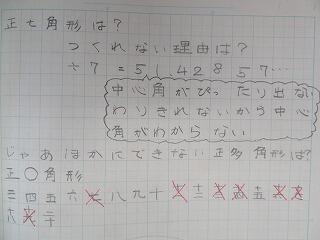 正七角形は?
つくれない理由は?
÷7=51.42857…
中心角がぴったり出ない
わりきれないから中心
角がわからない
じゃあほかにできない正多角形は?
正〇角形
三四五六七八九十十一十二十三十四十五十六十七
十八十九二十